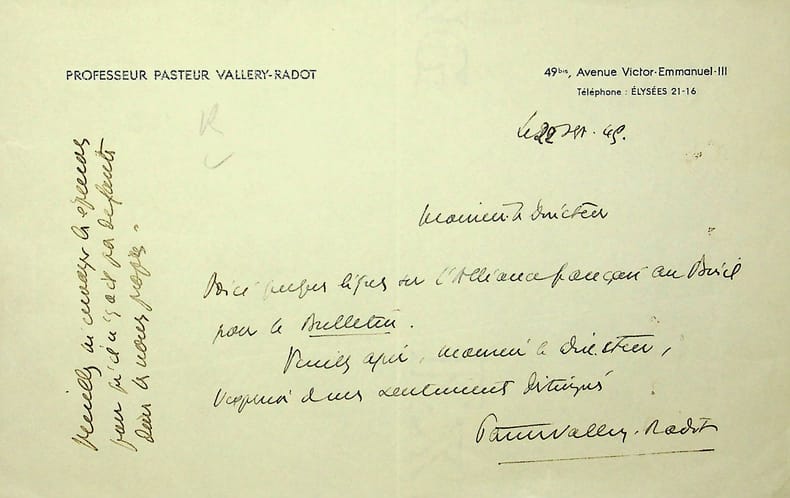 PROFESSEUR PASTEUR VALLERY-RADOT
49bis, Avenue Victor-Emmanuel-III
Téléphone : ÉLYSÉES 21-16
Le 22 45.
Monsieur le Directeur
Voici quelques lignes sur l'Alliance française au Brésil
pour le Bulletin.
Veuillez agréer, Monsieur le Directeur,
l'expression de mes sentiments distingués
Pasteur Vallery-Radot
Veuillez m'envoyer les épreuves
pour qu'il n'y ait pas de fautes
dans les noms propres.